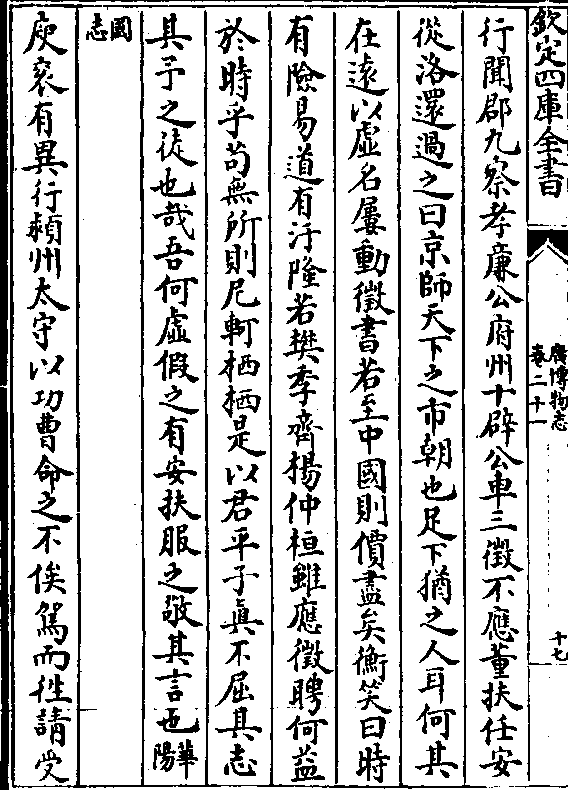 欽定四庫全書
廣博物志
卷二十一
十七
行聞郡九察孝廉公府州十辟公車三徵不應董扶任安
從洛還過之曰京師天下之市朝也足下猶之人耳何其
在逺以虚名屢動徵書若至中國則價盡矣衡笑曰時
有險易道有汙隆若樊季齊揚仲桓雖應徵聘何益
於時乎苟無所則尼軻栖栖是以君平子真不屈其志
其予之徒也哉吾何虚假之有安扶服之敬其言也華陽
國志
庾衮有異行潁州太守以功曹命之不俟駕而徃請受